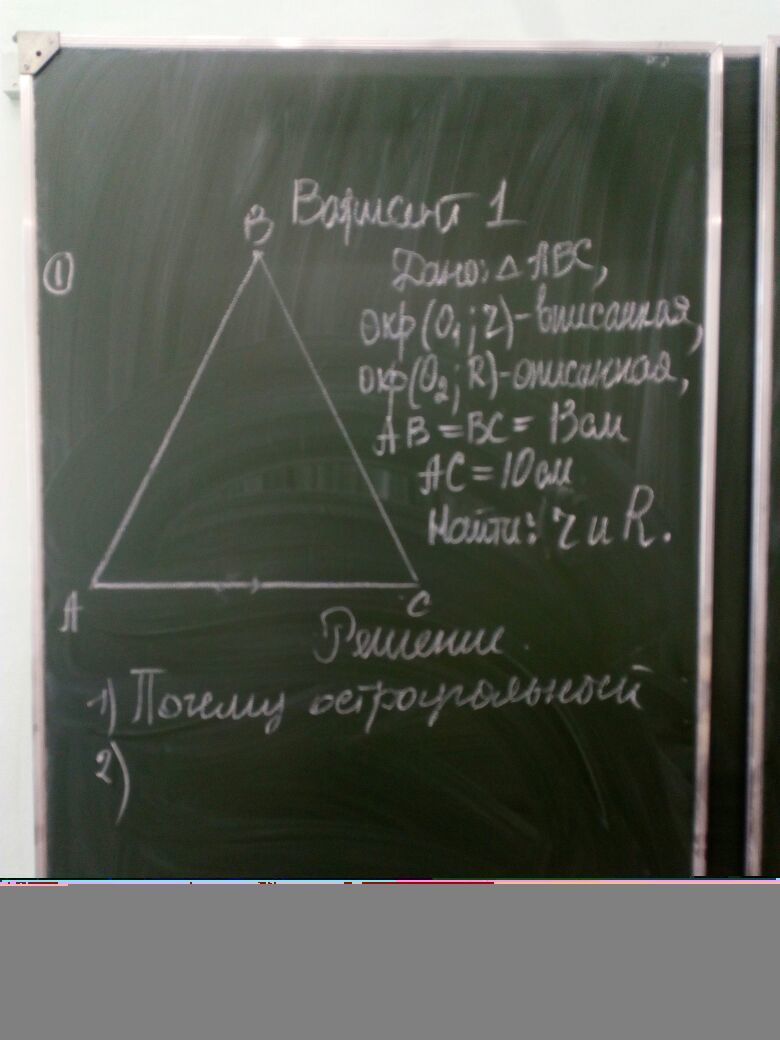 Вариант 1
B
①
Дано: △ ABC,
окр(O₁; r)-вписанная,
окр(O₂; R)-описанная,
AB = BC = 13 см
AC = 10 см
Найти: r и R.
A
C
Решение.
1) Почему остроугольный
2)